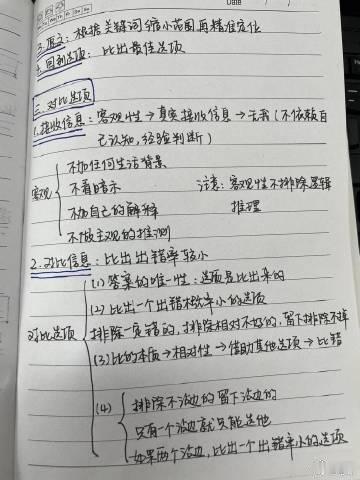 Date
3.原文：根据关键词缩小范围再精准定位
4.回到选项：比出最佳选项
三.对比选项
1.接收信息：客观性→真实接收信息→无我（不依赖自己认知，经验判断）
客观
不加任何生活背景
不看暗示
不加自己的解释
不做主观的推测
注意：客观性不排除逻辑
推理
2.对比信息：比出出错率较小
对比选项
(1)答案的唯一性：选项是比出来的
(2)比出一个出错概率小的选项
排除一定错的，排除相对不好的，留下排除不掉
(3)比的本质→相对性→借助其他选项→比错
(4)
排除不沾边的留下沾边的
只有一个沾边就只能选他
如果两个沾边，比出一个出错率小的选项